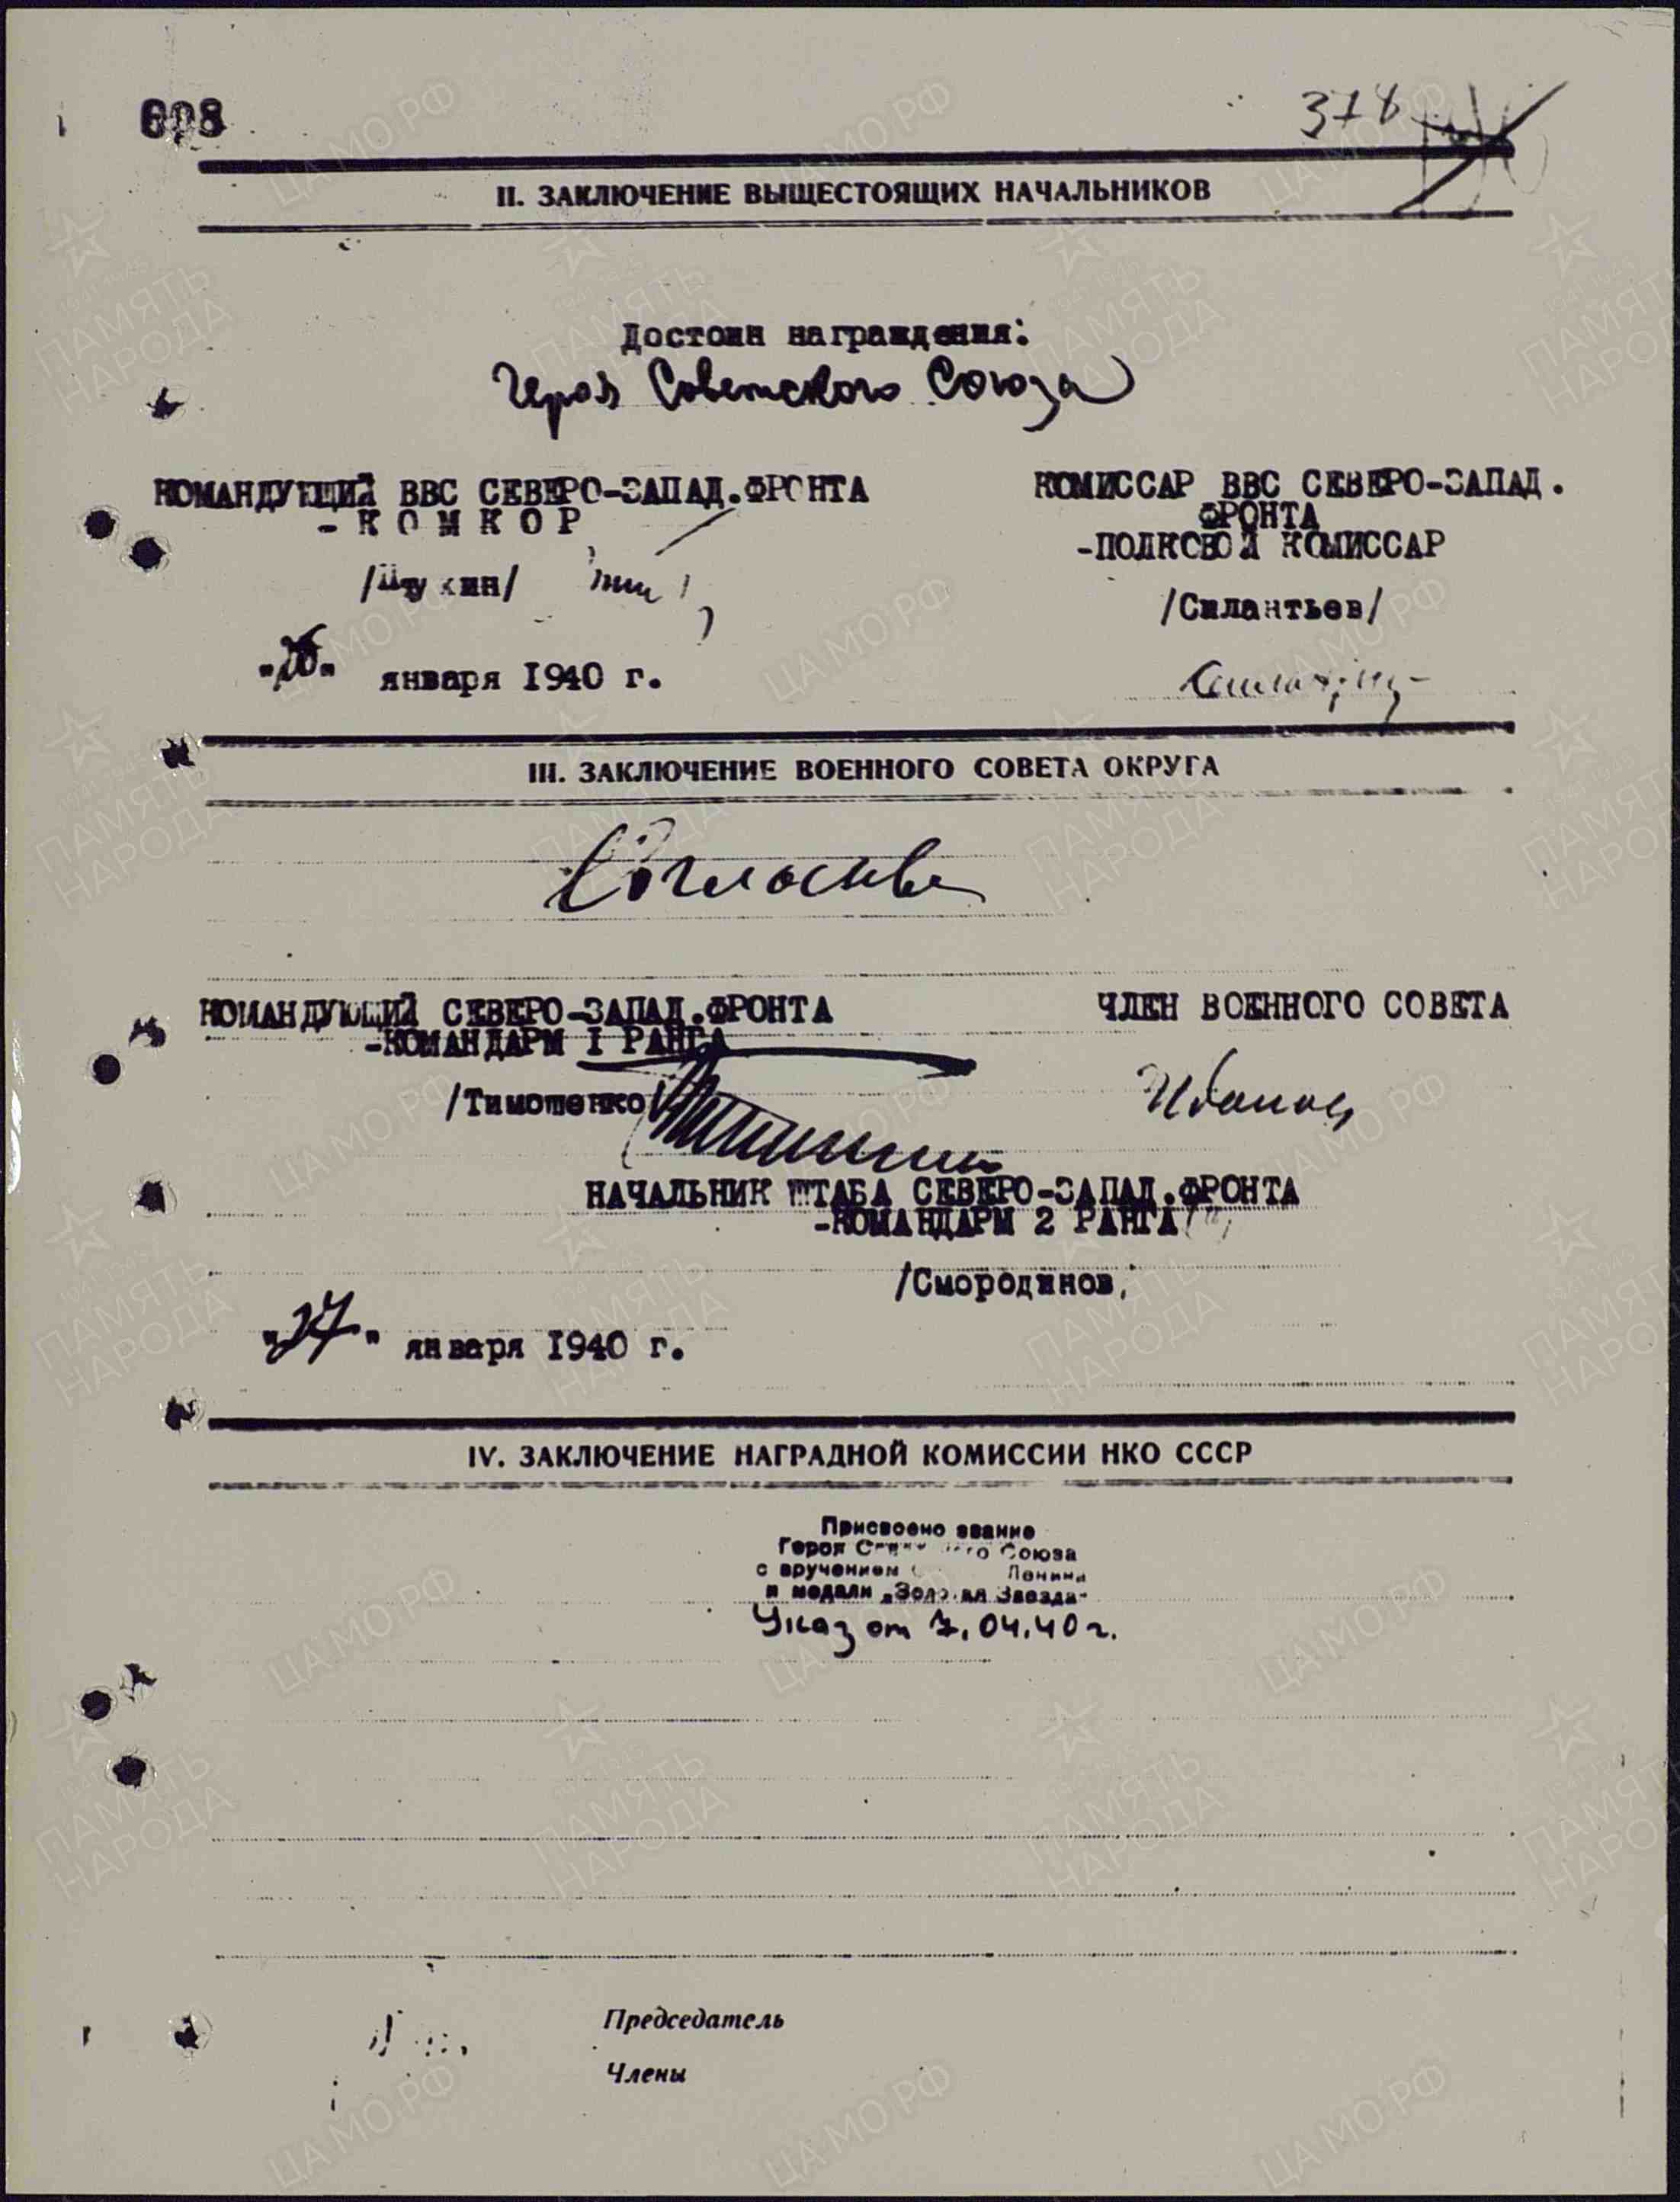 608
378
II. ЗАКЛЮЧЕНИЕ ВЫШЕСТОЯЩИХ НАЧАЛЬНИКОВ
Достоин награждения:
Героя Советского Союза
КОМАНДУЮЩИЙ ВВС СЕВЕРО-ЗАПАД.ФРОНТА
-КОМКОР
/Птухин/
"26" января 1940 г.
КОМИССАР ВВС СЕВЕРО-ЗАПАД.
ФРОНТА
-ПОЛКОВОЙ КОМИССАР
/Силантьев/
III. ЗАКЛЮЧЕНИЕ ВОЕННОГО СОВЕТА ОКРУГА
Согласны
КОМАНДУЮЩИЙ СЕВЕРО-ЗАПАД.ФРОНТА
-КОМАНДАРМ I РАНГА
/Тимошенко/
ЧЛЕН ВОЕННОГО СОВЕТА
НАЧАЛЬНИК ШТАБА СЕВЕРО-ЗАПАД.ФРОНТА
-КОМАНДАРМ 2 РАНГА
/Смородинов/
"27" января 1940 г.
IV. ЗАКЛЮЧЕНИЕ НАГРАДНОЙ КОМИССИИ НКО СССР
Присвоено звание
Героя Советского Союза
с вручением Ленина
и медали „Золотая Звезда"
Указ от 7.04.40 г.
Председатель
Члены
ЦА МО РФ
ПАМЯТЬ
НАРОДА